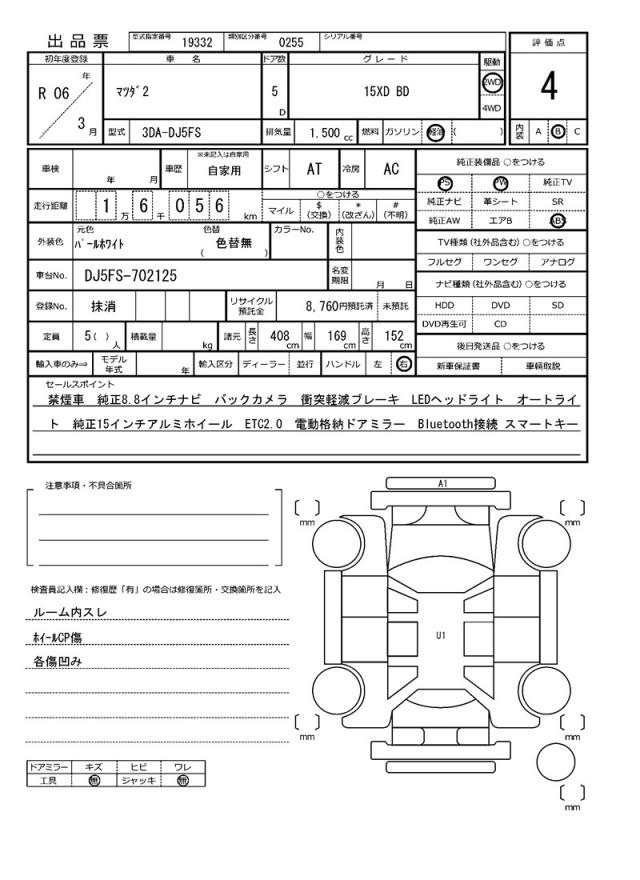 出品票 型式指定番号 19332 類別区分番号 0255 シリアル番号
初年度登録 車名 ドア数 グレード 駆動 評価点
R 06 年 3 月 マツダ2 5 D 15XD BD 2WD 4WD 4
型式 3DA-DJ5FS 排気量 1,500 cc 燃料 ガソリン 軽油 ( ) 内装 A B C
車検 年 月 車歴 ※未記入は自家用 自家用 シフト AT 冷房 AC
走行距離 1 万 6 千 0 5 6 km ○をつける マイル $ (交換) * (改ざん) # (不明)
外装色 元色 パールホワイト 色替 ( 色替無 ) カラーNo. 内装色
車台No. DJ5FS-702125 名変期限 月 日
登録No. 抹消 リサイクル預託金 8,760円預託済 未預託
定員 5( ) 人 積載量 kg 諸元 長さ 408 cm 幅 169 cm 高さ 152 cm
輸入車のみ⇒ モデル年式 年 輸入区分 ディーラー 並行 ハンドル 左 右
純正装備品 ○をつける
PS PW 純正TV
純正ナビ 革シート SR
純正AW エアB ABS
TV種類 (社外品含む) ○をつける
フルセグ ワンセグ アナログ
ナビ種類 (社外品含む) ○をつける
HDD DVD SD
DVD再生可 CD
後日発送品 ○をつける
新車保証書 車輌取説
セールスポイント
禁煙車 純正8.8インチナビ バックカメラ 衝突軽減ブレーキ LEDヘッドライト オートライ
ト 純正15インチアルミホイール ETC2.0 電動格納ドアミラー Bluetooth接続 スマートキー
注意事項・不具合箇所
検査員記入欄：修復歴「有」の場合は修復箇所・交換箇所を記入
ルーム内スレ
ホイールCP傷
各傷凹み
ドアミラー キズ ヒビ ワレ
工具 無 ジャッキ 無
A1
mm
mm
U1
mm
mm
mm